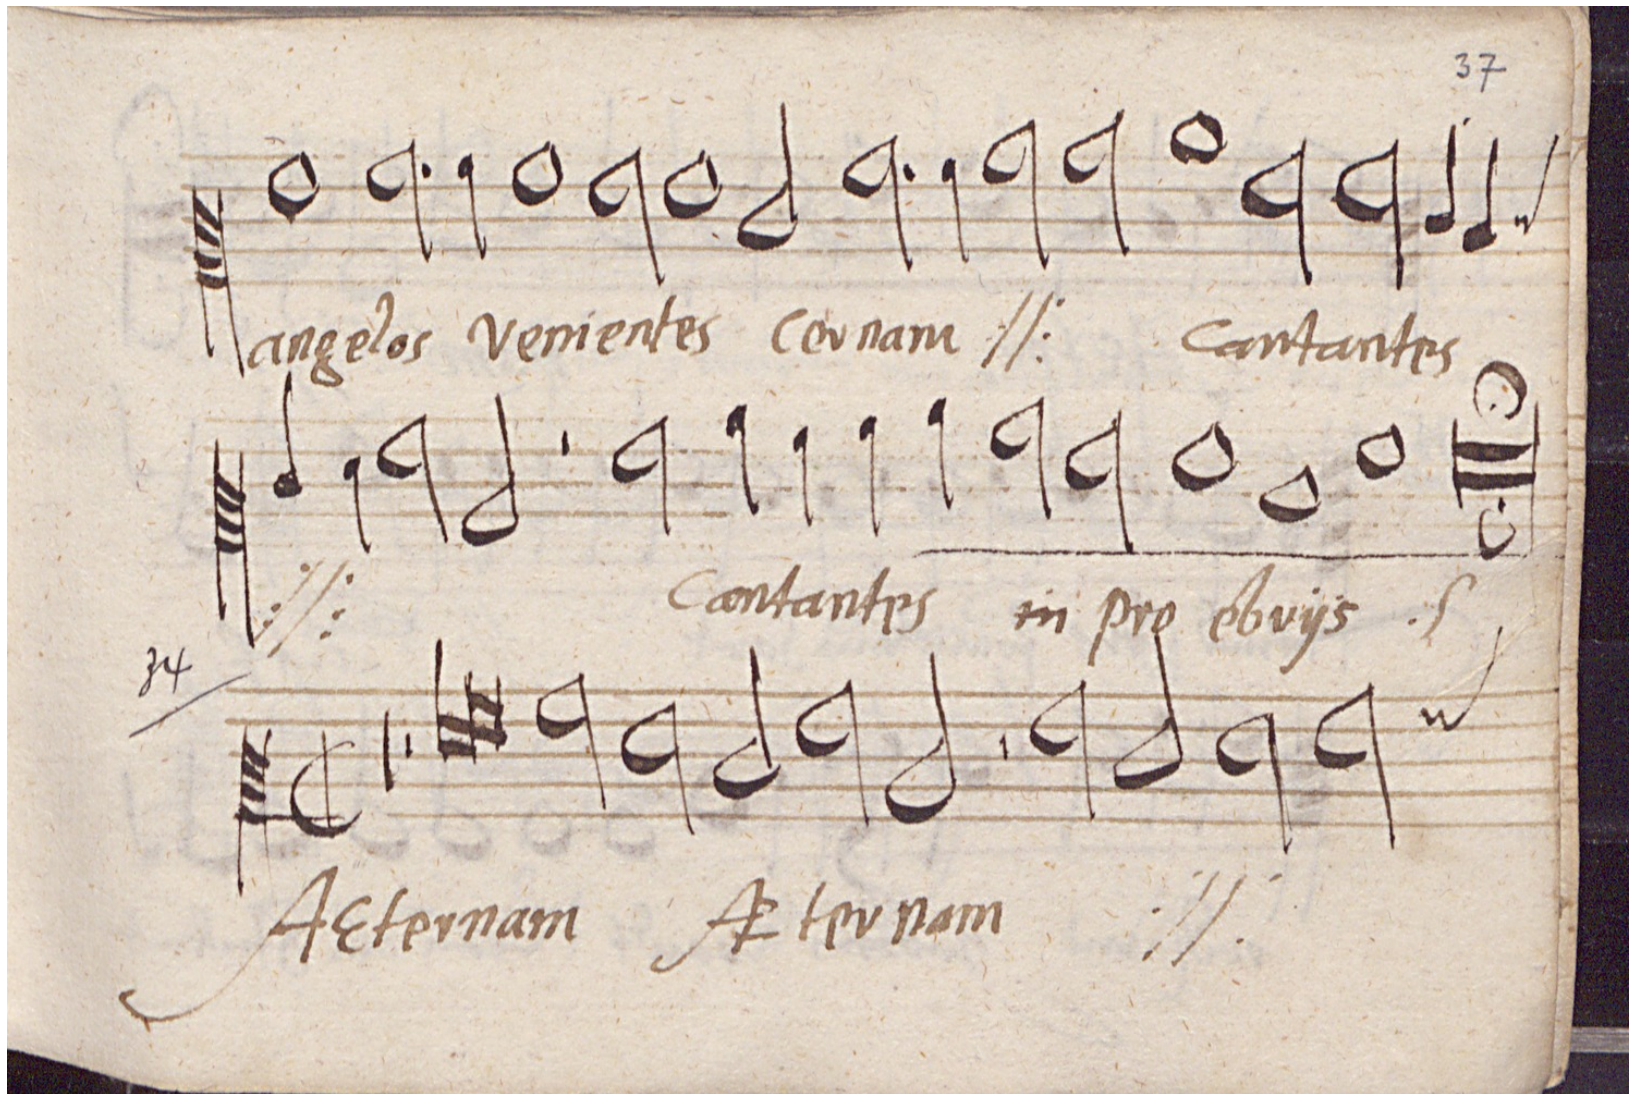 37
angelos venientes Cernam ://: Cantantes
://: Cantantes in pro ebrijs
34
AEternam AEternam ://: